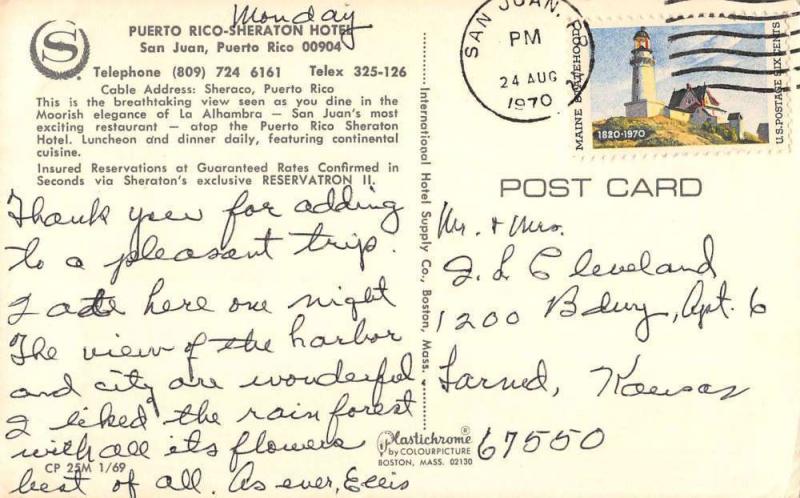 Monday
PUERTO RICO-SHERATON HOTEL
San Juan, Puerto Rico 00904
Telephone (809) 724 6161 Telex 325-126
Cable Address: Sheraco, Puerto Rico
This is the breathtaking view seen as you dine in the
Moorish elegance of La Alhambra — San Juan's most
exciting restaurant — atop the Puerto Rico Sheraton
Hotel. Luncheon and dinner daily, featuring continental
cuisine.
Insured Reservations at Guaranteed Rates Confirmed in
Seconds via Sheraton's exclusive RESERVATRON II.
Thank you for adding
to a pleasant trip.
I ate here one night
The view of the harbor
and city are wonderful
I liked the rain forest
with all its flowers
best of all. As ever, Ellis
CP 25M 1/69
International Hotel Supply Co., Boston, Mass.
Plastichrome®
by COLOURPICTURE
BOSTON, MASS. 02130
SAN JUAN, P.R.
PM
24 AUG
1970
MAINE STATEHOOD
1820-1970
U.S. POSTAGE SIX CENTS
POST CARD
Mr. & Mrs.
I. L. Cleveland
1200 Bdwy, Apt. 6
Larned, Kansas
67550